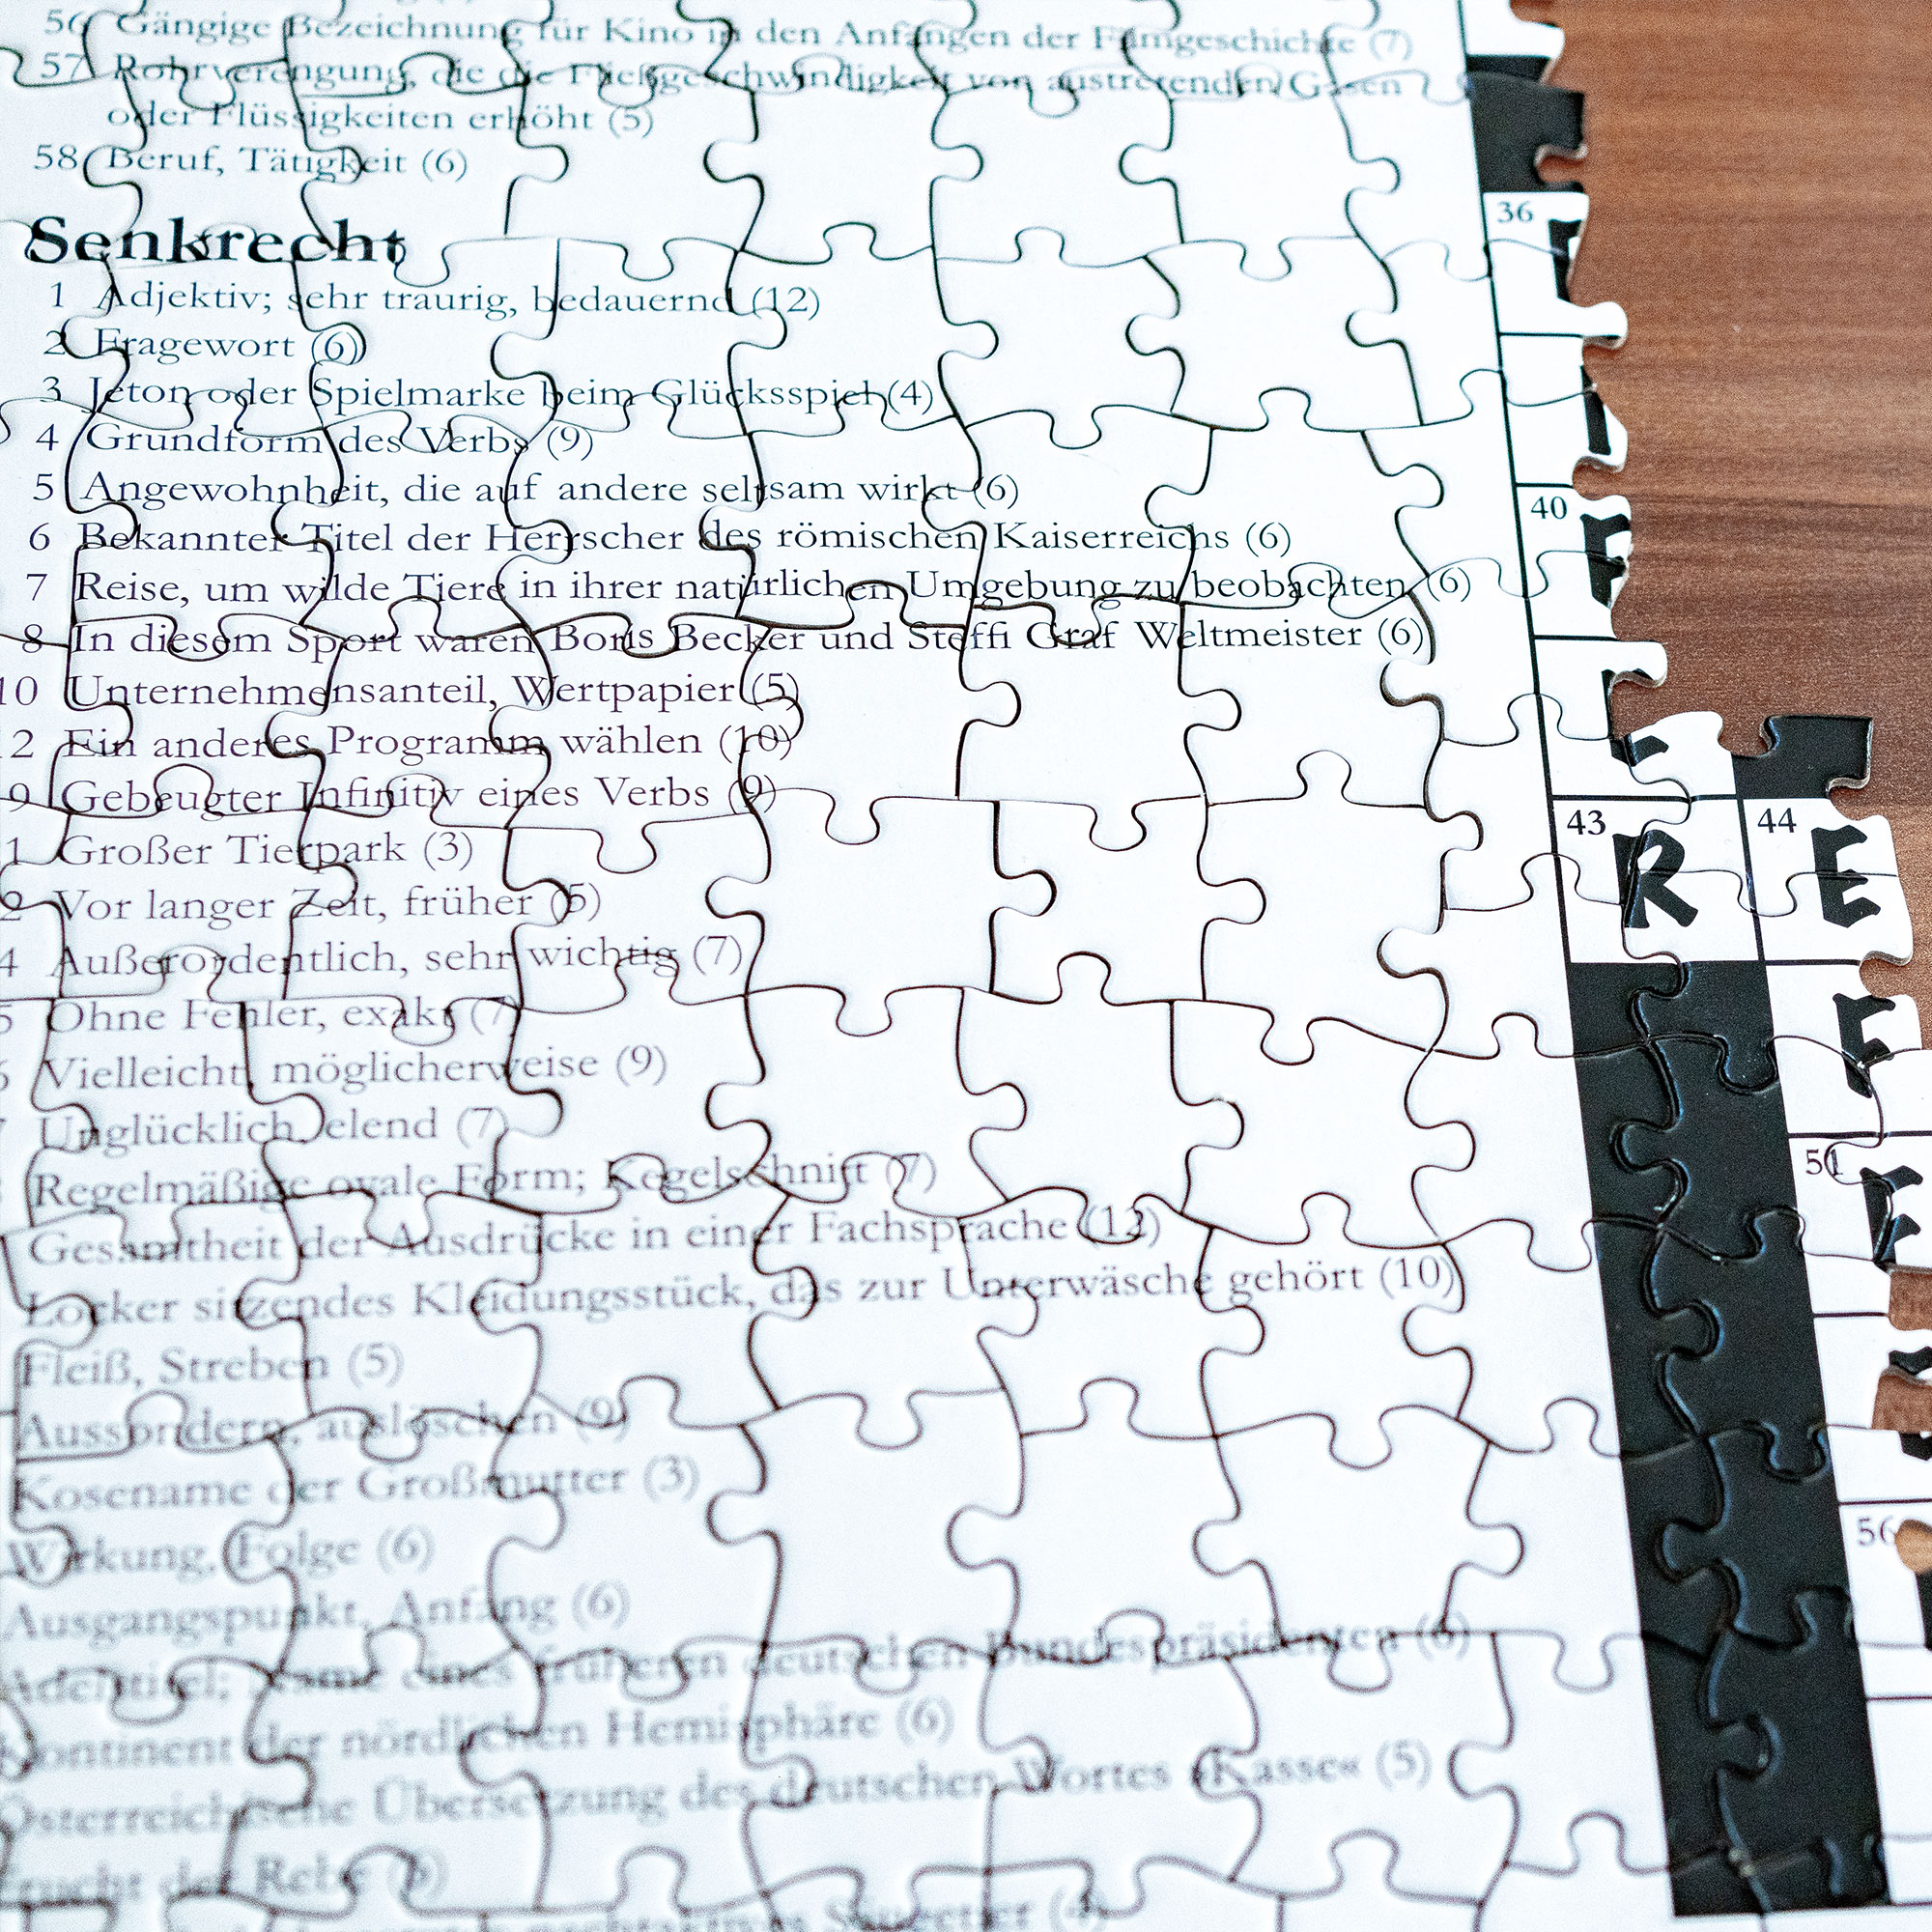 56 Gängige Bezeichnung für Kino in den Anfängen der Filmgeschichte (7)
57 Rohrverengung, die die Fließgeschwindigkeit von austretenden Gasen
oder Flüssigkeiten erhöht (5)
58 Beruf, Tätigkeit (6)
Senkrecht
1 Adjektiv; sehr traurig, bedauernd (12)
2 Fragewort (6)
3 Jeton oder Spielmarke beim Glücksspiel (4)
4 Grundform des Verbs (9)
5 Angewohnheit, die auf andere seltsam wirkt (6)
6 Bekannter Titel der Herrscher des römischen Kaiserreichs (6)
7 Reise, um wilde Tiere in ihrer natürlichen Umgebung zu beobachten (6)
8 In diesem Sport waren Boris Becker und Steffi Graf Weltmeister (6)
10 Unternehmensanteil, Wertpapier (5)
2 Ein anderes Programm wählen (10)
9 Gebeugter Infinitiv eines Verbs (9)
1 Großer Tierpark (3)
2 Vor langer Zeit, früher (5)
4 Außerordentlich, sehr wichtig (7)
5 Ohne Fehler, exakt (7)
6 Vielleicht, möglicherweise (9)
Unglücklich, elend (7)
Regelmäßige ovale Form; Kegelschnitt (7)
Gesamtheit der Ausdrücke in einer Fachsprache (12)
Locker sitzendes Kleidungsstück, das zur Unterwäsche gehört (10)
Fleiß, Streben (5)
Aussondern, auslöschen (9)
Kosename der Großmutter (3)
Wirkung, Folge (6)
Ausgangspunkt, Anfang (6)
Adelstitel; Name eines früheren deutschen Bundespräsidenten (6)
Kontinent der nördlichen Hemisphäre (6)
Österreichische Übersetzung des deutschen Wortes »Kasse« (5)
Frucht der Rebe
Säugetier (4)
36
40
43 R 44 E
E
51 E
56